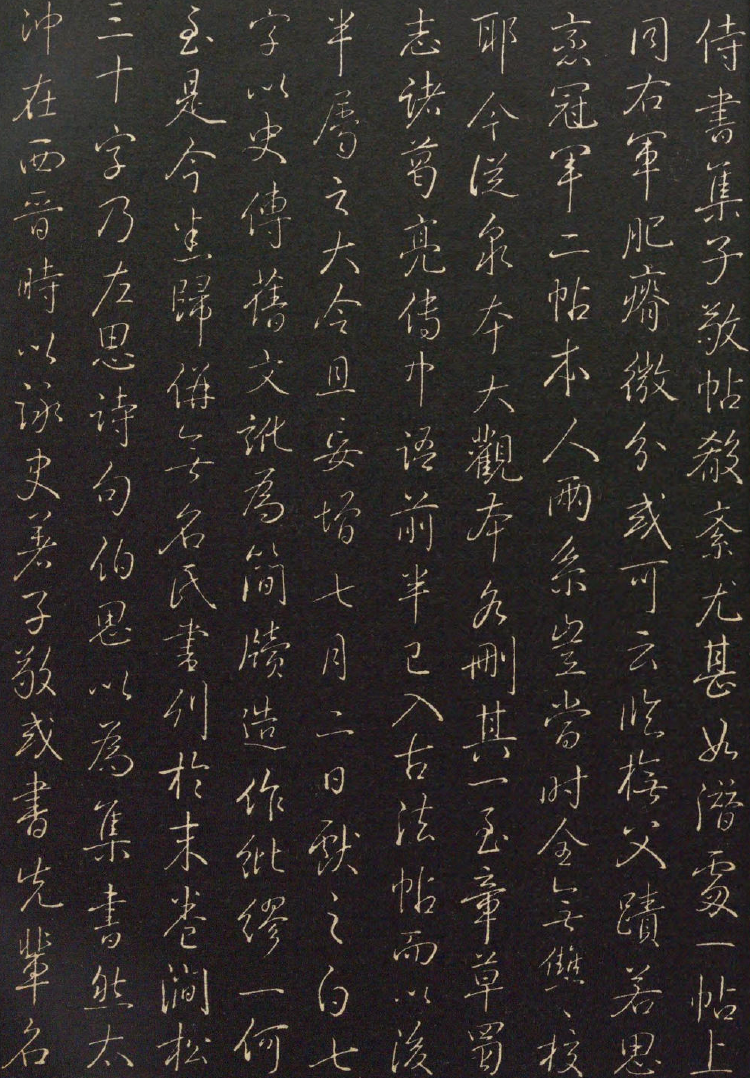 侍書集子敬帖殽紊尤甚如潛處一帖上
同右軍肥瘠微分或可云臨橅父蹟若思
戀冠軍二帖本人兩系豈當时全無讎〻校
耶今從泉本大觀本各刪其一至章草蜀
志諸葛亮傳中語前半已入古法帖而以後
半屬之大令且妄增七月二日獻之白七
字以史傳舊文訛為簡牘造作紕繆一何
至是今悉歸併無名氏書列於末卷澗松
三十字乃左思詩句伯思以為集書然太
沖在西晉時以詠史著子敬或書先輩名